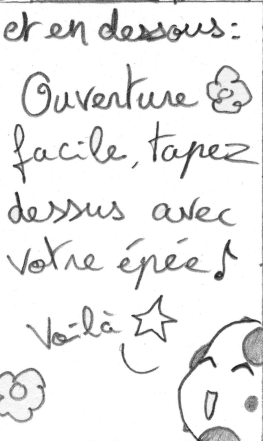 et en dessous:
Ouverture
facile, tapez
dessus avec
votre épée♪
Voilà ☆